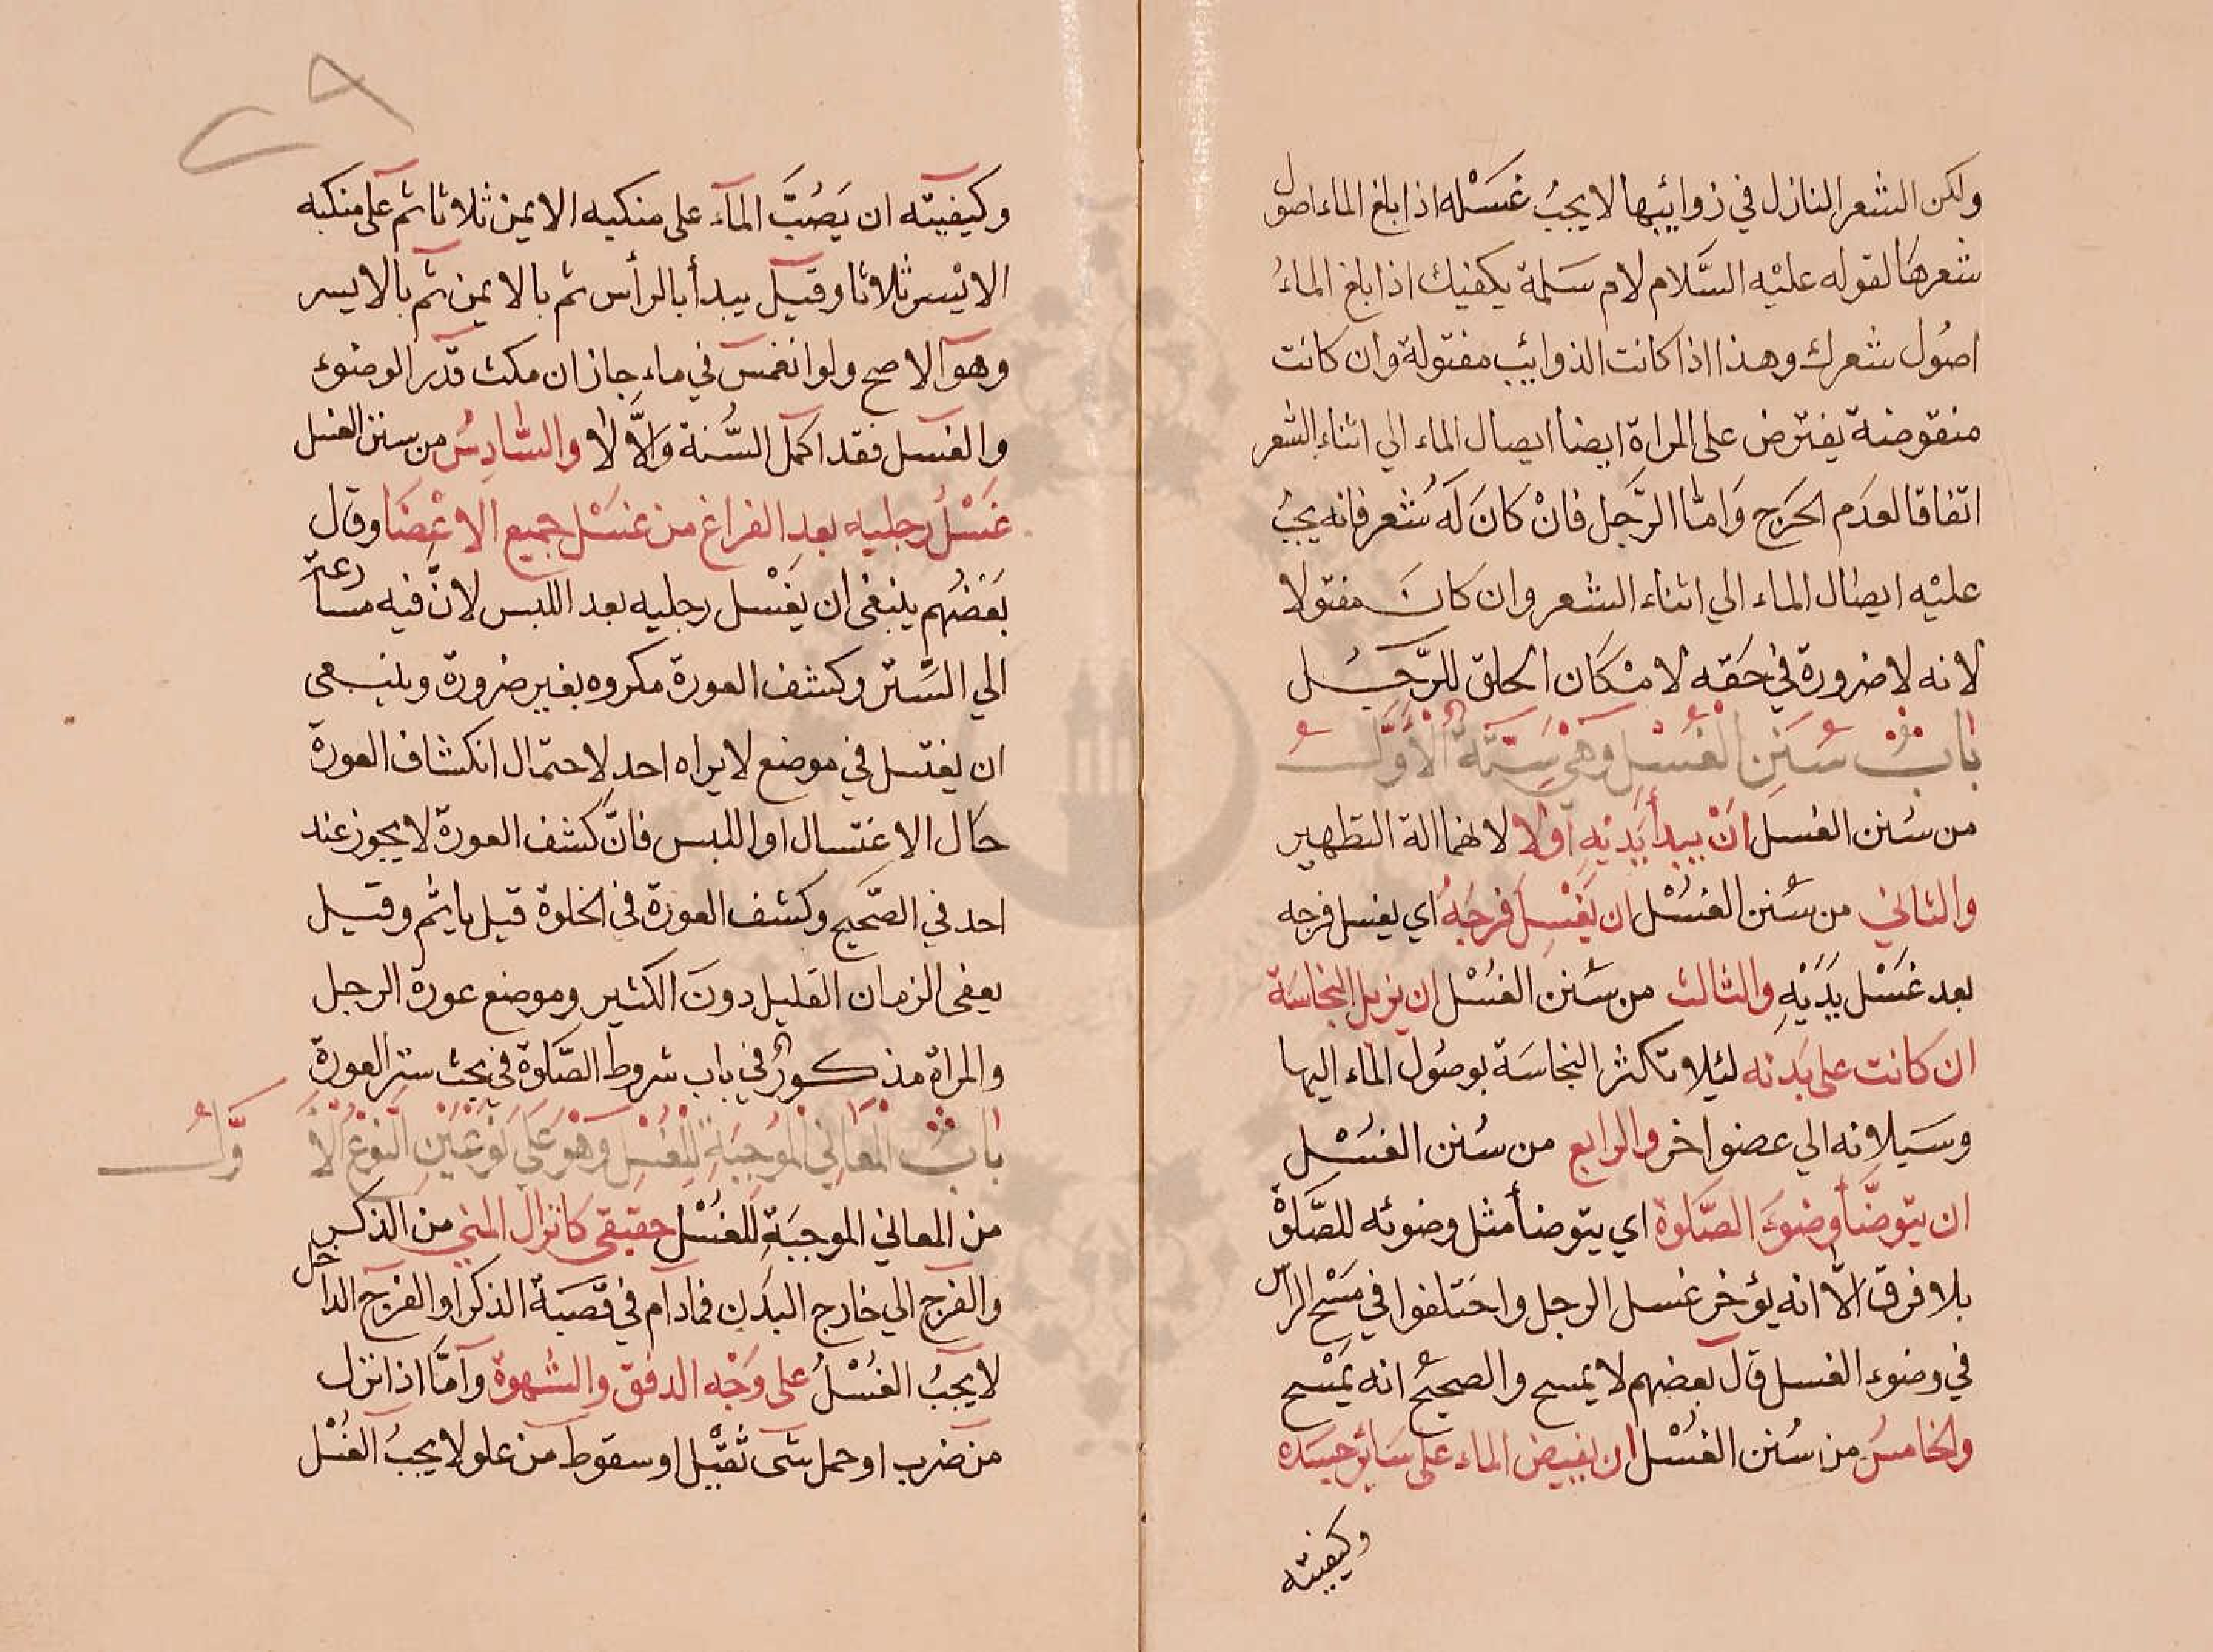 ولكن الشعر النازل في زوائبها لا يجبُ غَسْله اذا بلغ الماء اصول
شعرهَا لقوله عليْه السَّلام لام سَلمة يكفيك اذا بلغ الماءُ
اصُول شعرك وهذا اذا كانت الذوائب مفتولة وان كانت
منقوضة يفترض على المراة ايضا ايصال الماء الي اثناء الشعر
اتفاقا لعدَم الحَرَج وَامّا الرَّجل فانْ كانَ لَه شعر فانه يجبُ
عليْه ايصَال الماء الي اثناء الشعر وان كانَ مفتولا
لانه لا ضرورة في حَقه لا مْكان الحلق للرَّجُل
بابُ سُنَنِ الْغُسْلِ وَهْيَ سِتَّةٌ الْاَوَّلُ
من سُنن الغسل انْ يبدأ بيَديْهِ اوّلا لانهما الة التطهير
والثاني من سُنن الغسْل ان يَغْسِلَ فرجَهُ اي يغسل فرجه
بعد غَسْل يَدَيْهِ والثالث من سُنن الغُسْل ان يزيل النجاسَة
ان كانت على بَدنه لئلا تكثر النجاسَة بوصُول الماء اليها
وسَيلانه الي عضو اخر والرابع من سُنن الغُسْل
ان يتوضَّأ وضوءَ الصَّلوة اي يتوضأ مثل وضوئه للصَّلوة
بلا فرق الّا انه يؤخر غسل الرجل واختلفوا في مَسْح الراس
في وضوء الغسل قال بعضهم لا يمسح والصحيحُ انه يَمْسح
والخامسُ من سُنن الغُسْل ان يفيض الماء على سَائر جسَده
وكيفيته
٢٨
وكيفيته ان يَصُبَّ الماء على منكبه الايمن ثلاثا ثم على منكبه
الايْسر ثلاثا وقيل يبدأ بالرأس ثم بالايمن ثم بالايسر
وهو الاصح ولو انغمس في ماء جاز ان مكث قدر الوضوء
والغسل فقد اكمل السُّنة وَالَّا لا والسَّادِسُ من سنن الغسل
غَسْلُ رجليه بعد الفراغ من غسْل جميع الاعْضَا وقال
بَعْضهُم ينبغي ان يغْسل رجليه بعد اللبس لانّ فيه مسارعة
الي السَّتر وكشف العورة مكروه بغير ضرورة وينبغي
ان يغتسل في موضع لا يراه احد لاحتمال انكشاف العورة
حَال الاغتسال او اللبس فانَّ كشف العورة لا يجوز عند
احد في الصَّحيح وكشف العورة في الخلوة قيل ياثم وقيل
يعفى الزمان القليل دونَ الكثير وموضع عورة الرجل
والمراة مذكورٌ في باب شروط الصَّلوة في بحث ستر العورة
بابُ الْمَعَانِي الْمُوجِبَةِ لِلْغُسْلِ وَهْوَ عَلَي نَوْعَيْنِ النَّوْعُ الْاَوَّلُ
من المعاني الموجبَةِ للغُسْل حقيقي كانزال المني من الذكر
والفرج الي خارج البدَن فمادام في قصَبَة الذكر او الفرج الداخل
لا يجبُ الغُسْلُ على وَجْه الدفق والشهوة وامَّا اذا نزل
من ضرب او حمل شى ثقيْل او سقوط من علو لا يجبُ الغُسْل